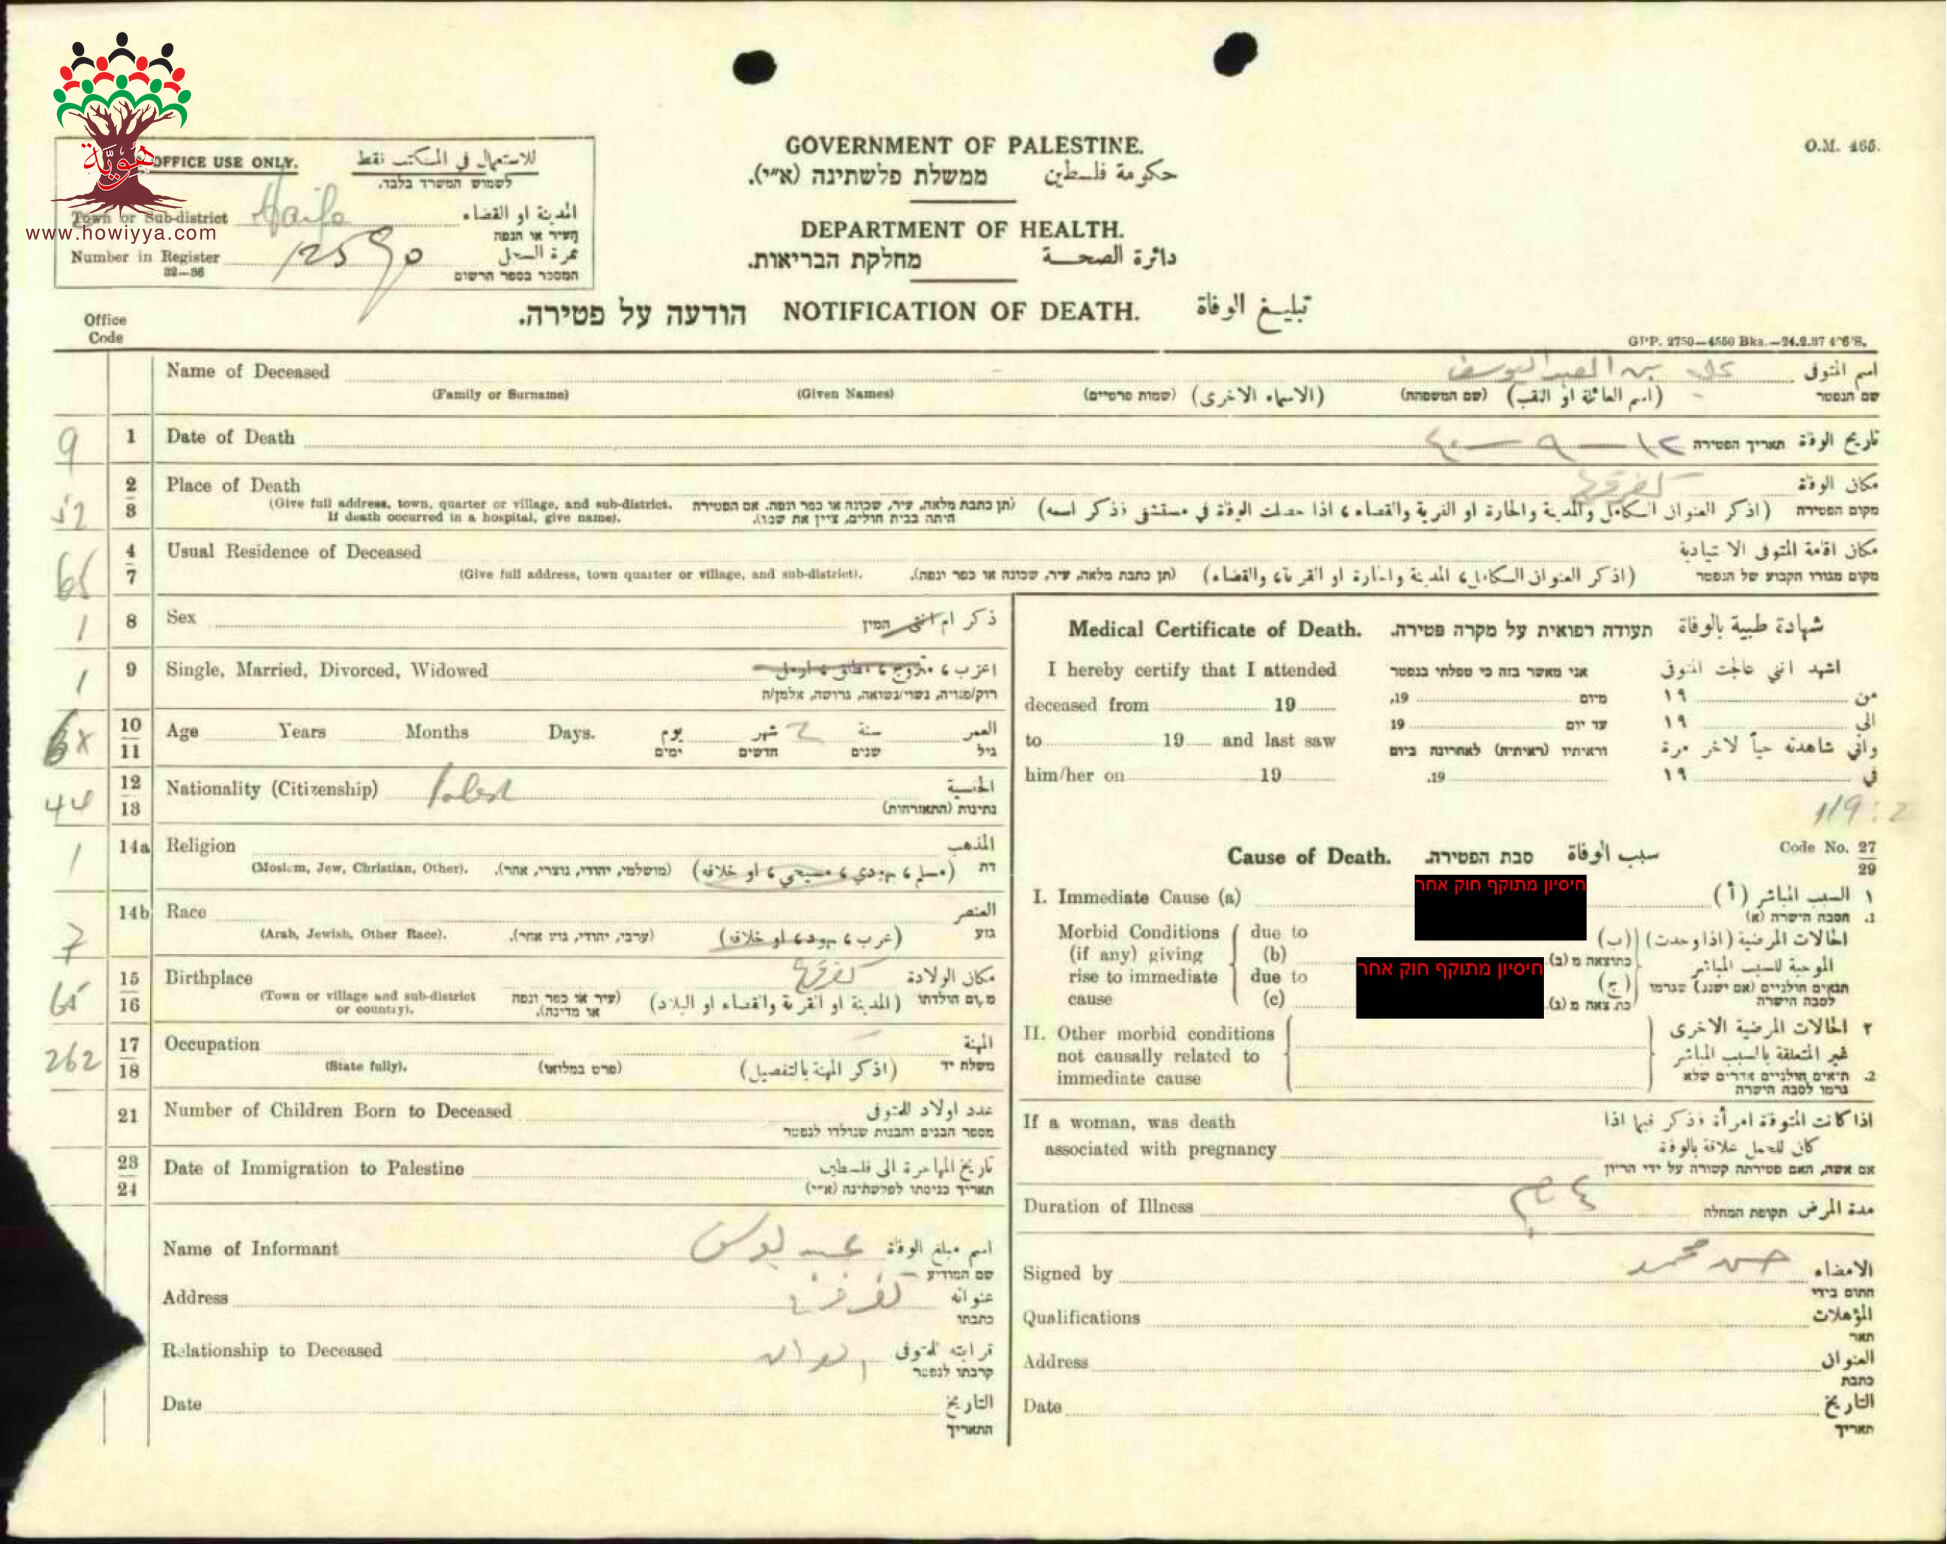 هوية
www.howiyya.com
OFFICE USE ONLY. للاستعمال في المكتب فقط
לשמוש המשרד בלבד.
Town or Sub-district Haifa المدينة او القضاء
העיר או הנפה
Number in Register 12590 نمرة السجل
32—36 המספר בספר הרשום
GOVERNMENT OF PALESTINE.
ממשלת פלשתינה (א״י). حكومة فلسطين
DEPARTMENT OF HEALTH.
מחלקת הבריאות. دائرة الصحة
O.M. 465.
הודעה על פטירה. NOTIFICATION OF DEATH. تبليغ الوفاة
Office
Code
GPP. 2750—4550 Bks.—24.2.37
Name of Deceased بن العبد اليوسف اسم المتوفى
(Family or Surname) (Given Names) (שמות פרטיים) (الاسماء الاخرى) (שם המשפחה) (اسم العائلة او اللقب) שם הנפטר
9 1 Date of Death ١٢ — ٩ — ٤٠ תאריך הפטירה تاريخ الوفاة
52 2 3 Place of Death مكان الوفاة
(Give full address, town, quarter or village, and sub-district. If death occurred in a hospital, give name).
(תן כתבת מלאה, עיר, שכונה או כפר ונפה. אם הפטירה היתה בבית חולים, ציין את שמו).
(اذكر العنوان الكامل والمدينة والحارة او القرية والقضاء، اذا حصلت الوفاة في مستشفى فذكر اسمه) מקום הפטירה
65 4 7 Usual Residence of Deceased مكان اقامة المتوفى الاعتيادية
(Give full address, town quarter or village, and sub-district). (תן כתבת מלאה, עיר, שכונה או כפר ונפה). (اذكر العنوان الكامل، المدينة والحارة او القرية، والقضاء) מקום מגורו הקבוע של הנפטר
1 8 Sex המין ذكر ام انثى
1 9 Single, Married, Divorced, Widowed اعزب، متزوج، مطلق، ارمل
רוק/פנויה, נשוי/נשואה, גרוש/ה, אלמן/ה
10 11 Age Years Months Days. يوم شهر 2 سنة العمر
ימים חדשים שנים גיל
44 12 13 Nationality (Citizenship) Palest الجنسية
נתינות (התאזרחות)
1 14a Religion المذهب
(Moslem, Jew, Christian, Other). (מושלמי, יהודי, נוצרי, אחר). (مسلم، يهودي، مسيحي، او خلافه) דת
7 14b Race العنصر
(Arab, Jewish, Other Race). (ערבי, יהודי, גזע אחר). (عرب، يهود، او خلافه) גזע
65 15 16 Birthplace مكان الولادة
(Town or village and sub-district or country). (עיר או כפר ונפה או מדינה). (المدينة او القرية والقضاء او البلاد) מקום הולדתו
262 17 18 Occupation المهنة
(State fully). (פרט במלואו) (اذكر المهنة بالتفصيل) משלח יד
21 Number of Children Born to Deceased عدد اولاد المتوفى
מספר הבנים והבנות שנולדו לנפטר
23 24 Date of Immigration to Palestine تاريخ المهاجرة الى فلسطين
תאריך כניסתו לפלשתינה (א״י)
Name of Informant اسم مبلغ الوفاة
שם המודיע
Address عنوانه
כתבתו
Relationship to Deceased قرابته للمتوفى
קרבתו לנפטר
Date التاريخ
התאריך
Medical Certificate of Death. תעודה רפואית על מקרה פטירה. شهادة طبية بالوفاة
I hereby certify that I attended אני מאשר בזה כי טפלתי בנפטר اشهد انني عالجت المتوفى
deceased from 19 מיום 19, من ١٩
to 19 and last saw עד יום 19 الى ١٩
וראיתיו (ראיתיה) לאחרונה ביום واني شاهدته حياً لاخر مرة
him/her on 19 19. في ١٩
119:2
Cause of Death. סבת הפטירה. سبب الوفاة Code No. 27 29
I. Immediate Cause (a) חיסיון מתוקף חוק אחר ١ السبب المباشر (أ)
1. הסבה הישרה (א)
Morbid Conditions due to الحالات المرضية (اذا وجدت) (ب)
(if any) giving (b) כתוצאה מ (ב) الموجبة للسبب المباشر
rise to immediate due to חיסיון מתוקף חוק אחר (ج) תנאים חולניים (אם ישנם) שגרמו
cause (c) כתוצאה מ (ג) לסבה הישרה
II. Other morbid conditions ٢ الحالات المرضية الاخرى
not causally related to غير المتعلقة بالسبب المباشر
immediate cause 2. תנאים חולניים אחרים שלא
גרמו לסבה הישרה
If a woman, was death اذا كانت المتوفاة امرأة فذكر فيما اذا
associated with pregnancy كان للحمل علاقة بالوفاة
אם אשה, האם פטירתה קשורה על ידי הריון
Duration of Illness תקופת המחלה مدة المرض
Signed by حسن محمد الامضاء
חתום בידי
Qualifications المؤهلات
תאר
Address العنوان
כתבת
Date التاريخ
תאריך